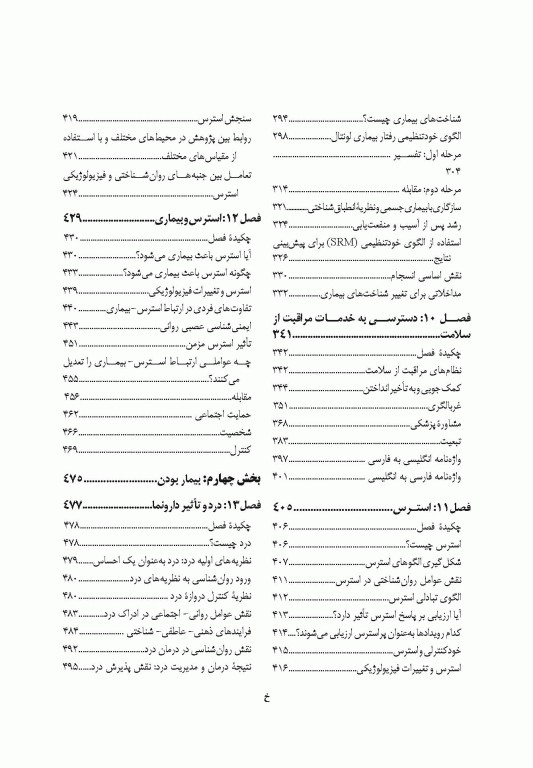 شناخت‌های بیماری چیست؟..................................۲۹۴
الگوی خودتنظیمی رفتار بیماری لونتال....................۲۹۸
مرحله اول: تفسیر ............................................
۳۰۴
مرحله دوم: مقابله ..............................۳۱۴
سازگاری با بیماری جسمی و نظریهٔ انطباق شناختی..........۳۲۱
رشد پس از آسیب و منفعت‌یابی........................۳۲۴
استفاده از الگوی خودتنظیمی (SRM) برای پیش‌بینی
نتایج..................................................۳۲۶
نقش اساسی انسجام...................................۳۳۰
مداخلاتی برای تغییر شناخت‌های بیماری...............۳۳۲
فصل ۱۰: دسترسی به خدمات مراقبت از
سلامت..................................................۳۴۱
چکیدهٔ فصل............................................۳۴۲
نظام‌های مراقبت از سلامت............................۳۴۲
کمک‌جویی و به تأخیر انداختن..........................۳۴۴
غربالگری...............................................۳۵۱
مشاورهٔ پزشکی.........................................۳۶۸
تبعیت..................................................۳۸۳
واژه‌نامه انگلیسی به فارسی ..........................۳۹۷
واژه‌نامه فارسی به انگلیسی ..........................۴۰۱
فصل ۱۱: استرس..................................۴۰۵
چکیدهٔ فصل............................................۴۰۶
استرس چیست؟.........................................۴۰۶
شکل‌گیری الگوهای استرس.............................۴۰۷
نقش عوامل روان‌شناختی در استرس....................۴۱۱
الگوی تبادلی استرس..................................۴۱۲
آیا ارزیابی بر پاسخ استرس تأثیر دارد؟................۴۱۳
کدام رویدادها به‌عنوان پراسترس ارزیابی می‌شوند؟....۴۱۴
خودکنترلی و استرس...................................۴۱۵
استرس و تغییرات فیزیولوژیکی.........................۴۱۶
سنجش استرس..........................................۴۱۹
روابط بین پژوهش در محیط‌های مختلف و با استفاده
از مقیاس‌های مختلف..................................۴۲۱
تعامل بین جنبه‌های روان‌شناختی و فیزیولوژیکی
استرس.................................................۴۲۴
فصل ۱۲: استرس و بیماری........................۴۲۹
چکیدهٔ فصل............................................۴۳۰
آیا استرس باعث بیماری می‌شود؟.......................۴۳۰
چگونه استرس باعث بیماری می‌شود؟...................۴۳۳
استرس و تغییرات فیزیولوژیکی.........................۴۳۹
تفاوت‌های فردی در ارتباط استرس-بیماری............۴۴۰
ایمنی‌شناسی عصبی روانی..............................۴۴۳
تأثیر استرس مزمن.....................................۴۵۱
چه عواملی ارتباط استرس- بیماری را تعدیل
می‌کنند؟...............................................۴۵۵
مقابله.................................................۴۵۶
حمایت اجتماعی .......................................۴۶۲
شخصیت................................................۴۶۶
کنترل..................................................۴۶۹
بخش چهارم: بیمار بودن........................۴۷۵
فصل ۱۳: درد و تأثیر دارونما......................۴۷۷
چکیدهٔ فصل............................................۴۷۸
درد چیست؟............................................۴۷۸
نظریه‌های اولیه درد: درد به‌عنوان یک احساس.......۴۷۹
ورود روان‌شناسی به نظریه‌های درد....................۴۸۰
نظریهٔ کنترل دروازهٔ درد ............................۴۸۰
نقش عوامل روانی- اجتماعی در ادراک درد............۴۸۳
فرایندهای ذهنی- عاطفی- شناختی ...................۴۸۴
نقش روان‌شناسی در درمان درد........................۴۹۲
نتیجهٔ درمان و مدیریت درد: نقش پذیرش درد.......۴۹۵
خ